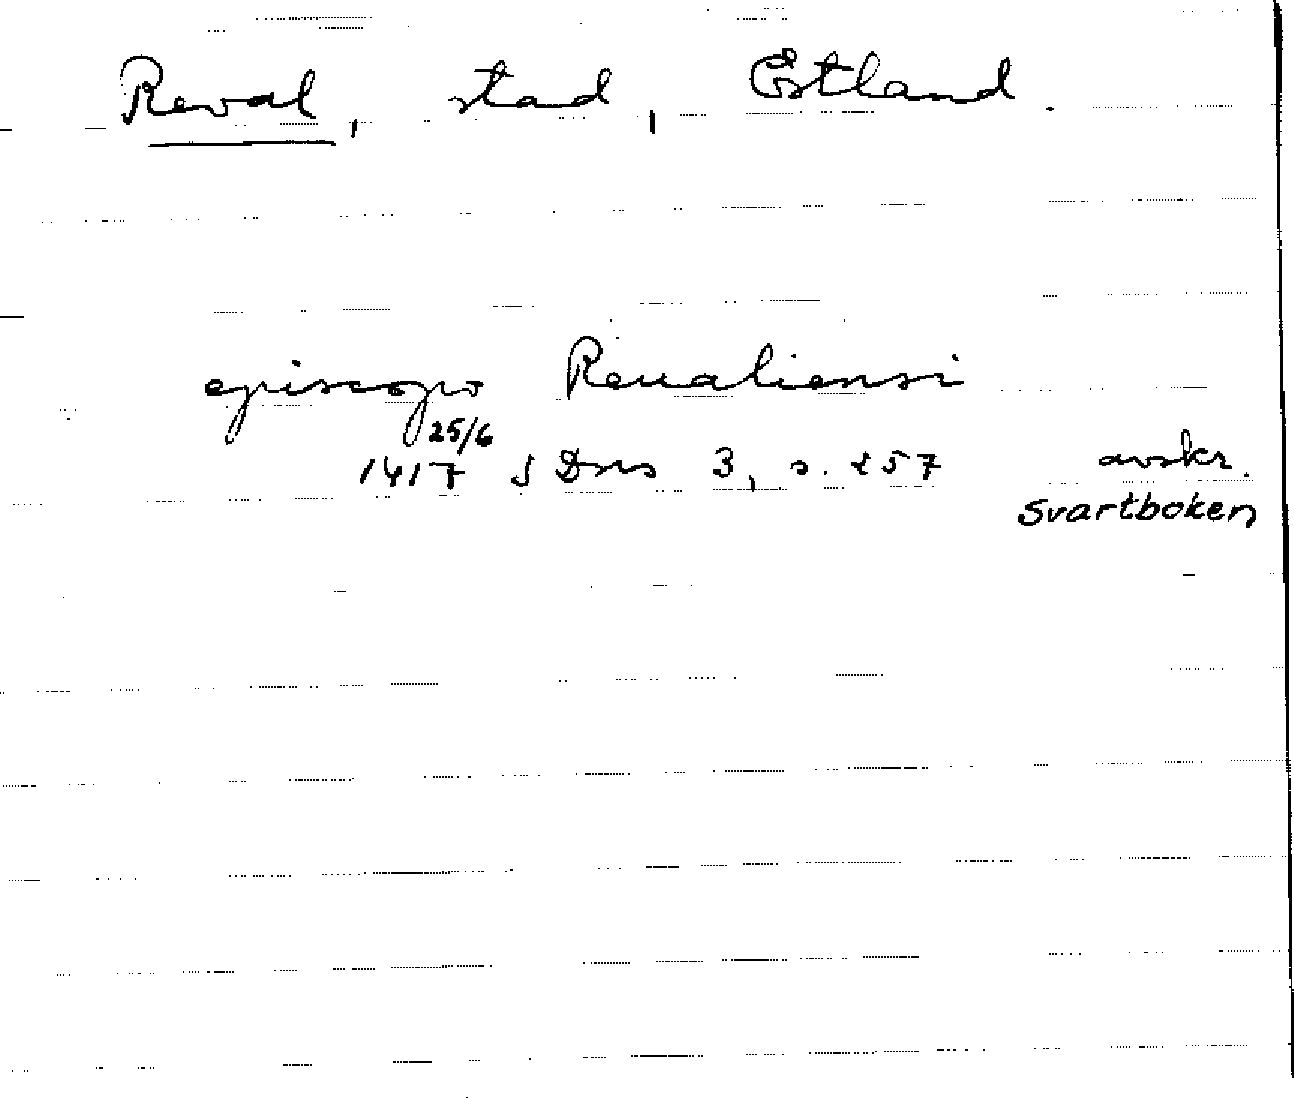 Reval, stad, Estland.
episcopo Reualiensi
25/6
1417 SDns 3, s. 257 avskr.
Svartboken